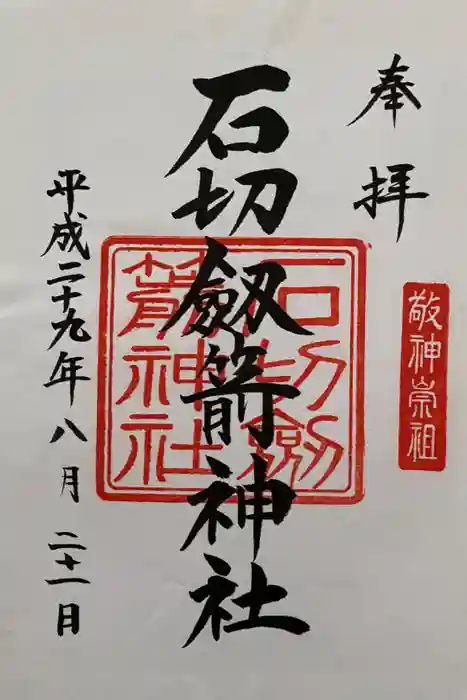 奉拝
敬神崇祖
石切劔箭神社
石切劔
箭神社
平成二十九年八月二十一日